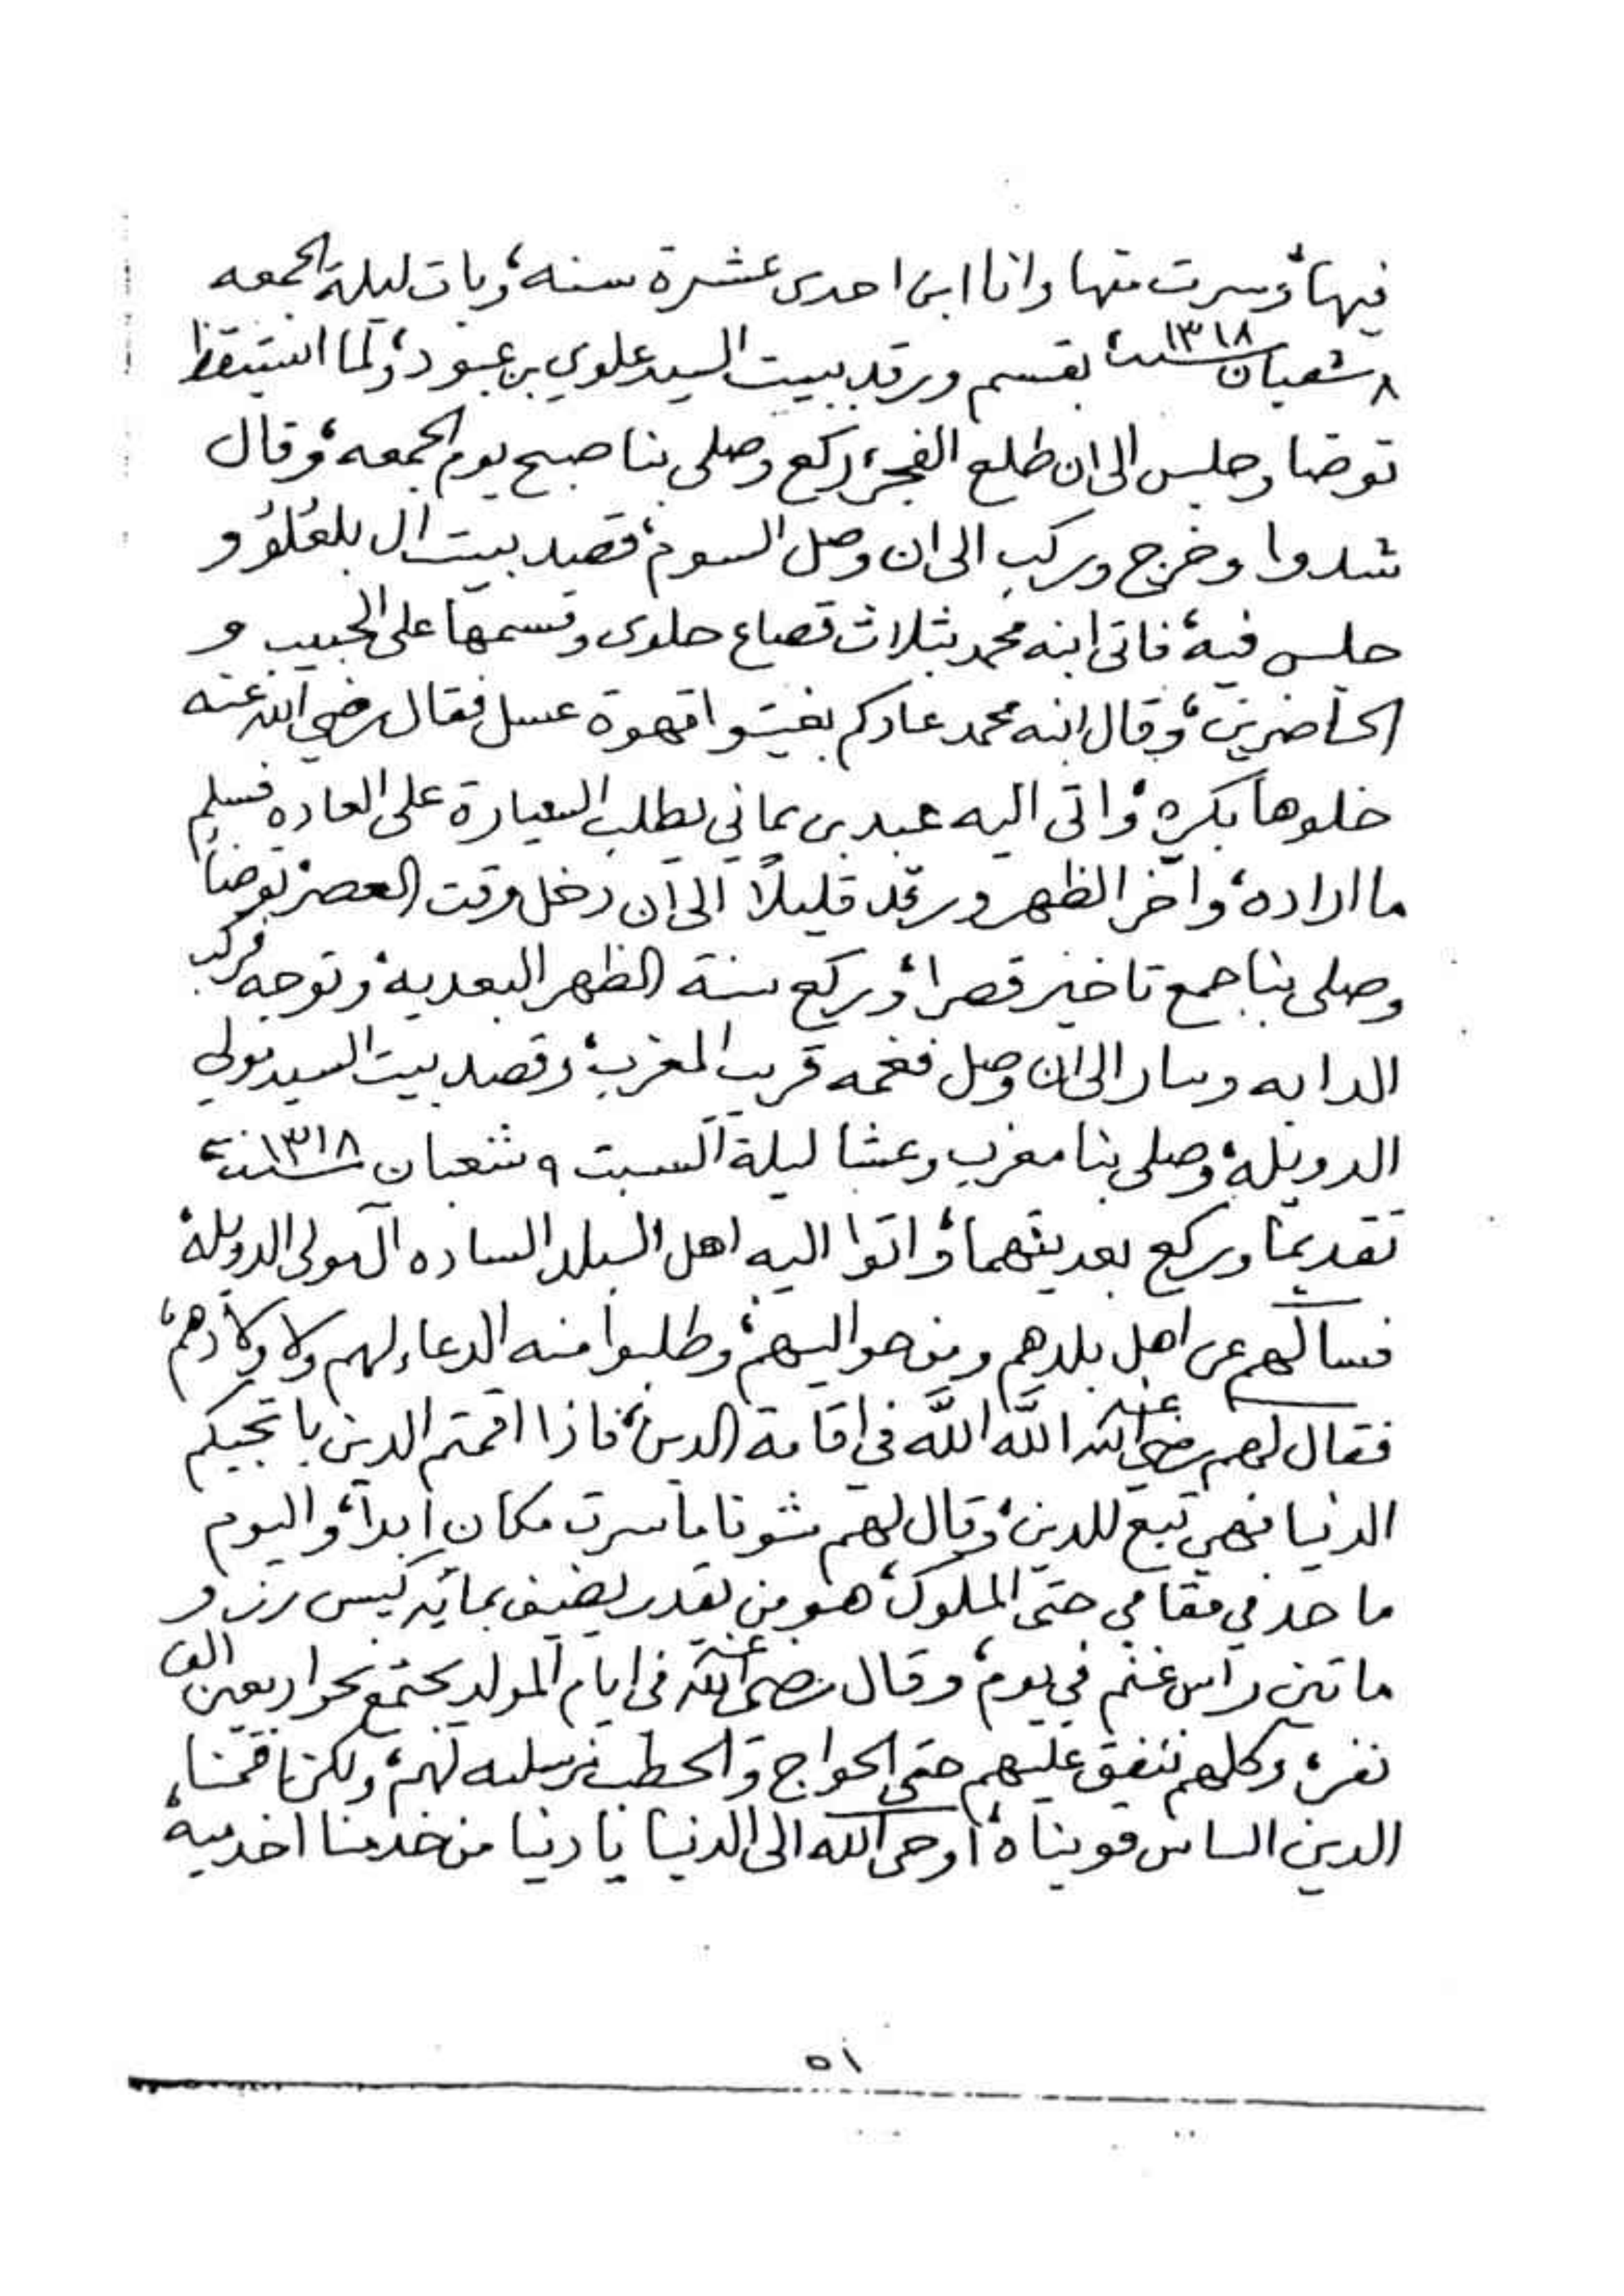 فيها، وسرت منها وانا ابن احدى عشرة سنه، وبات ليلة الجمعه
٨ شعبان سنة ١٣١٨ بقسم ورقد ببيت السيد علوي بن عبود، ولما استيقظ
توضا وجلس الى ان طلع الفجر، ركع وصلى بنا صبح يوم الجمعه، وقال
شدوا وخرج وركب الى ان وصل السوم، قصد بيت ال بلعُلوُ و
جلس فيه، فاتى ابنه محمد بثلاث قصاع حلوى وقسمها على الحبيب و
الحاضرين، وقال ابنه محمد عادكم بغيتوا قهوة عسل فقال رضي الله عنه
خلوها بكره، واتى اليه عبد بن يماني يطلب السيارة على العاده فسلم
ما اراده، واخر الظهر ورقد قليلاً الى ان دخل وقت العصر، توضا
وصلى بنا جمع تاخير قصرا، وركع سنة الظهر البعديه، وتوجه فركب
الدابه وسار الى ان وصل فغمه قريب المغرب، وقصد بيت السيد مولى
الدويلة، وصلى بنا مغرب وعشا ليلة السبت ٩ شعبان سنة ١٣١٨
تقديما وركع بعديتهما، واتوا اليه اهل البلد الساده آل مولى الدويلة،
فسالهم عن اهل بلدهم ومن حواليهم، وطلبوا منه الدعاء لهم ولاولادهم،
فقال لهم رضي الله عنه اللَّه اللَّه في اقامة الدين، فاذا اقمتم الدين با تجيكم
الدنيا فهي تبع للدين، وقال لهم شونا ما سرت مكان ابداً، واليوم
ما حد في مقامي حتى الملوك، هو من يقدر يضيف بمائة كيس رز و
ماتين راس غنم في يوم، وقال رضي الله عنه في ايام المولد يجتمع نحو اربعين الف
نفر، وكلهم ننفق عليهم حتى الحوايج والحطب نرسله لهم، ولكن نا قمنا،
الدين الساس قويناه، أوحى الله الى الدنيا يا دنيا من خدمنا اخدميه،
٥١